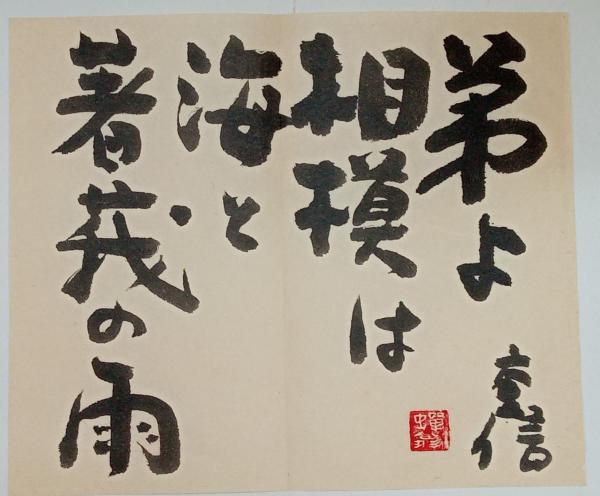 弟よ
相模は
海と
著莪の雨
重信